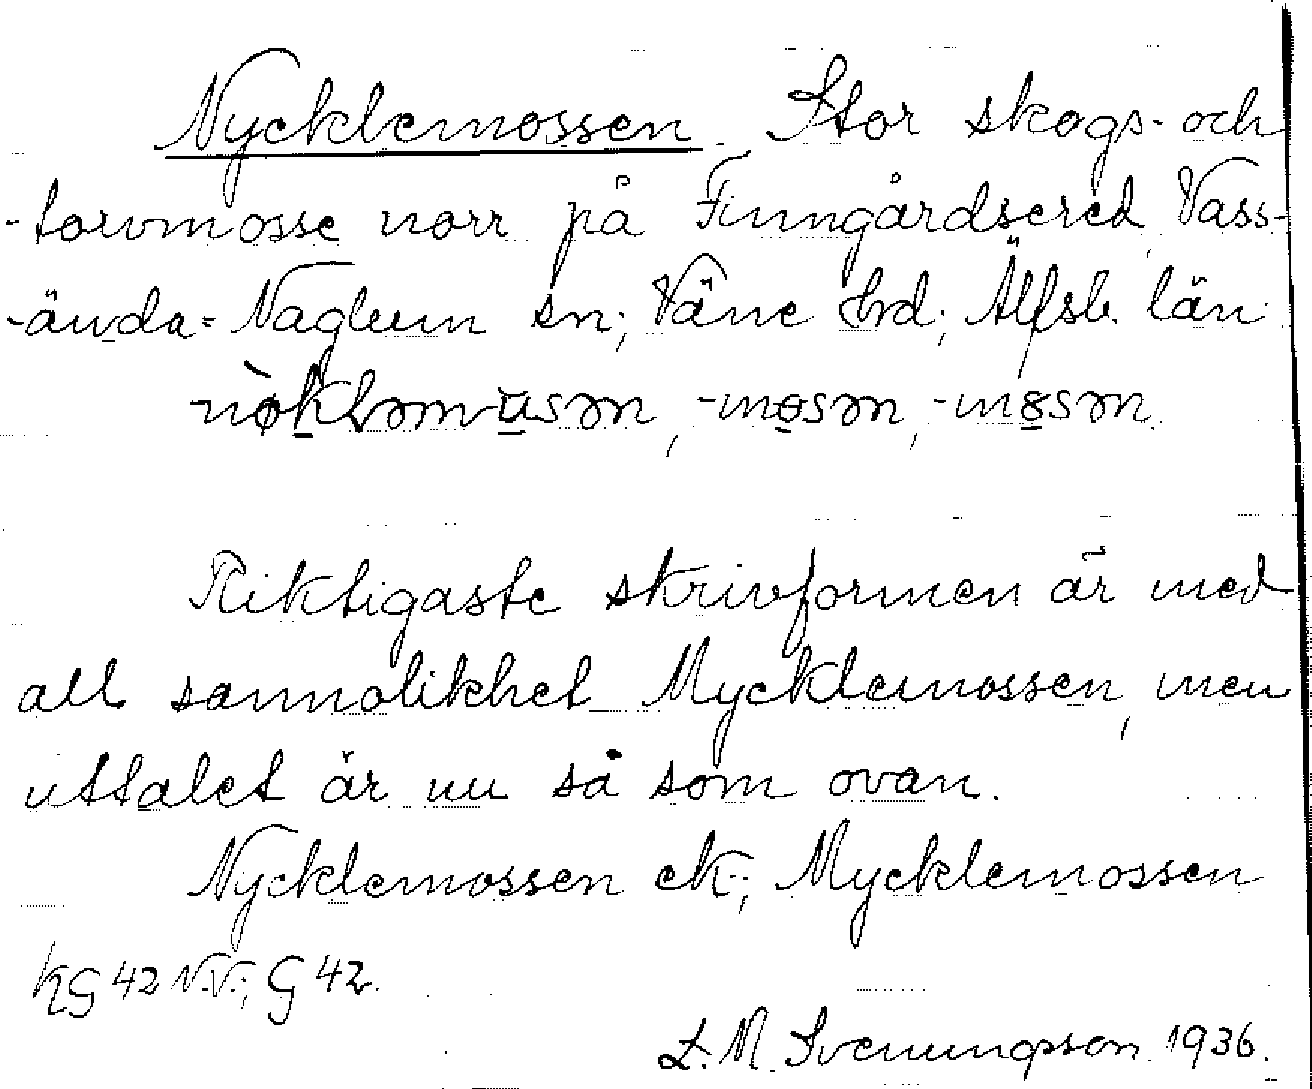 Nycklemossen. Stor skogs- och
-torvmosse norr på Finngårdsered, Vass-
-ända-Naglum sn; Väne hrd; Älfsb. län.
nø̀kləmu̲sən, -mo̲sən, -m8̲sən.
Riktigaste skrivformen är med
all sannolikhet Mycklemossen, men
uttalet är nu så som ovan.
Nycklemossen ek; Mycklemossen
KG 42 N.V.; G 42.
L. M. Svenungsson 1936.